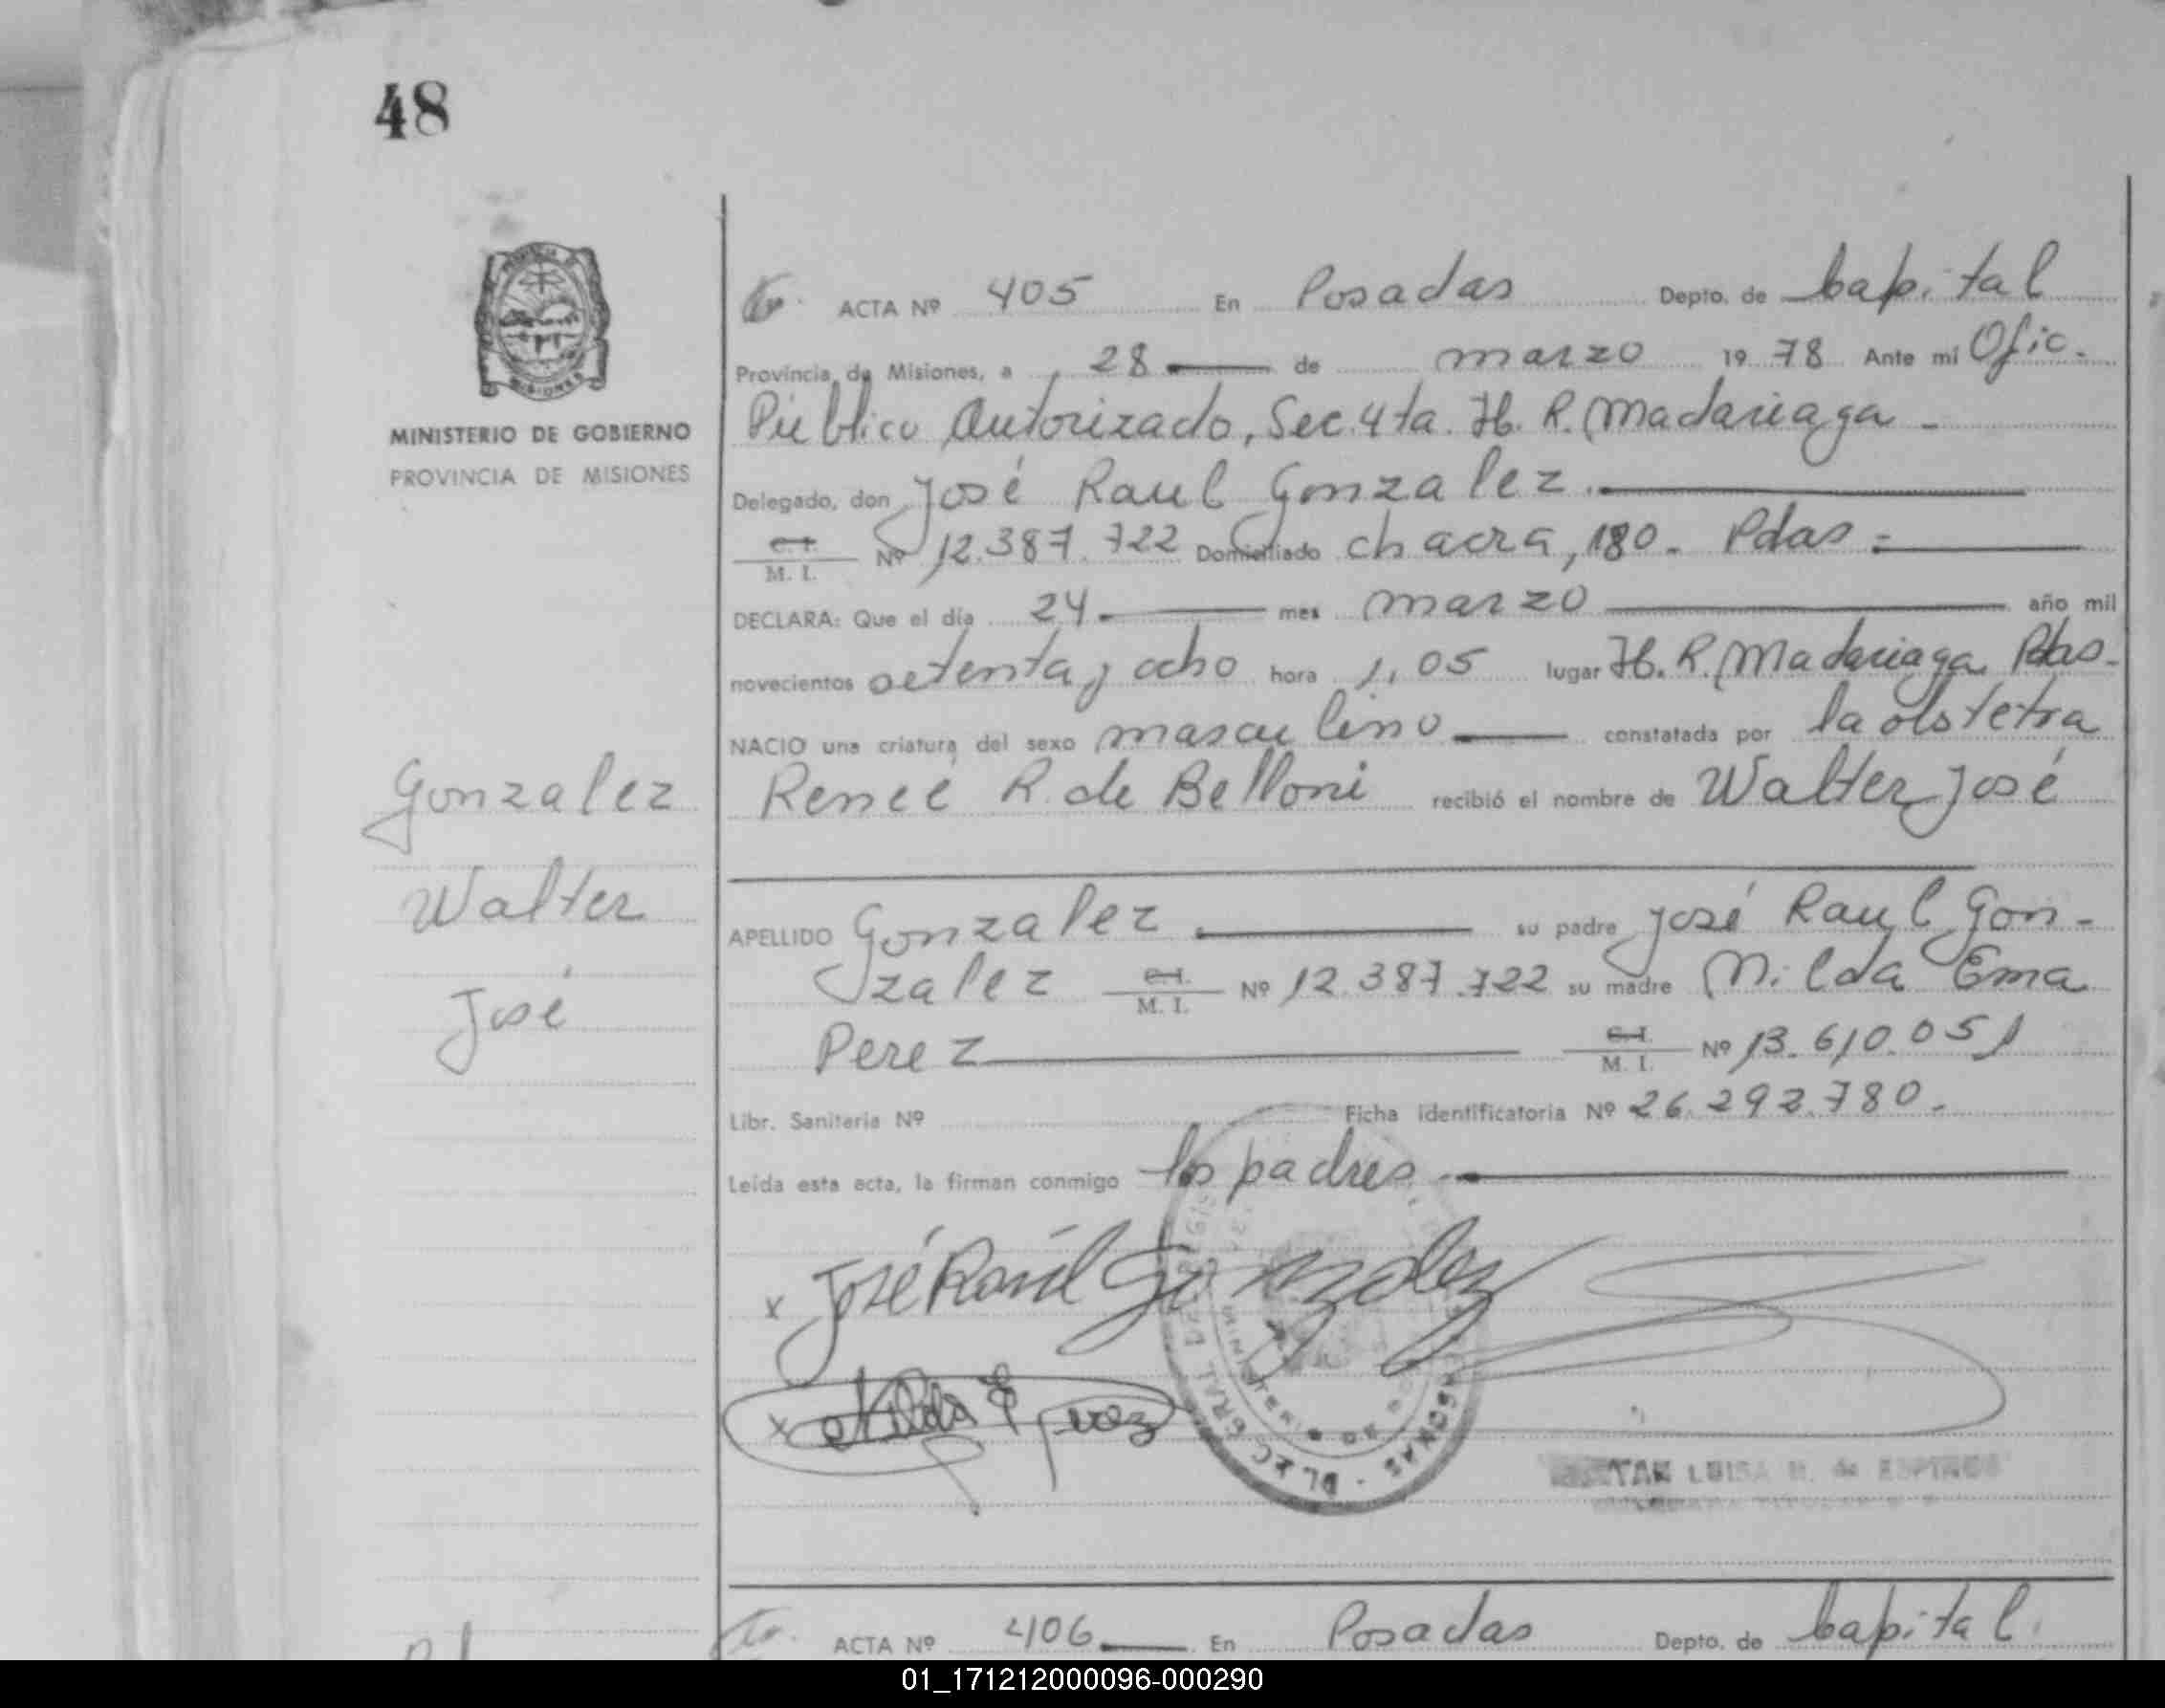 48
MINISTERIO DE GOBIERNO
PROVINCIA DE MISIONES
ACTA Nº 405 En Posadas Depto. de Capital
Provincia de Misiones, a 28 de marzo 1978 Ante mi Ofic.
Público Autorizado, Sec. 4ta. H. R. Madariaga -
Delegado, don José Raul Gonzalez.
C. I.
M. I. Nº 12.387.722 Domiciliado chacra, 180. Pdas.
DECLARA: Que el día 24 mes marzo año mil
novecientos setenta y ocho hora 1,05 lugar H. R. Madariaga Pdas.
NACIO una criatura del sexo masculino constatada por la obstetra
Reneé R. de Belloni recibió el nombre de Walter José
Gonzalez
Walter
José
APELLIDO Gonzalez su padre José Raul Gon-
zalez C. I. M. I. Nº 12.387.722 su madre Nilda Ema
Perez C. I. M. I. Nº 13.610.051
Libr. Sanitaria Nº Ficha identificatoria Nº 26.292.780.
Leída esta acta, la firman conmigo los padres
x José Raúl Gonzalez
x Nilda E Perez
MINISTERIO DE
LUISA M. de
ACTA Nº 406 En Posadas Depto. de Capital.
01_171212000096-000290